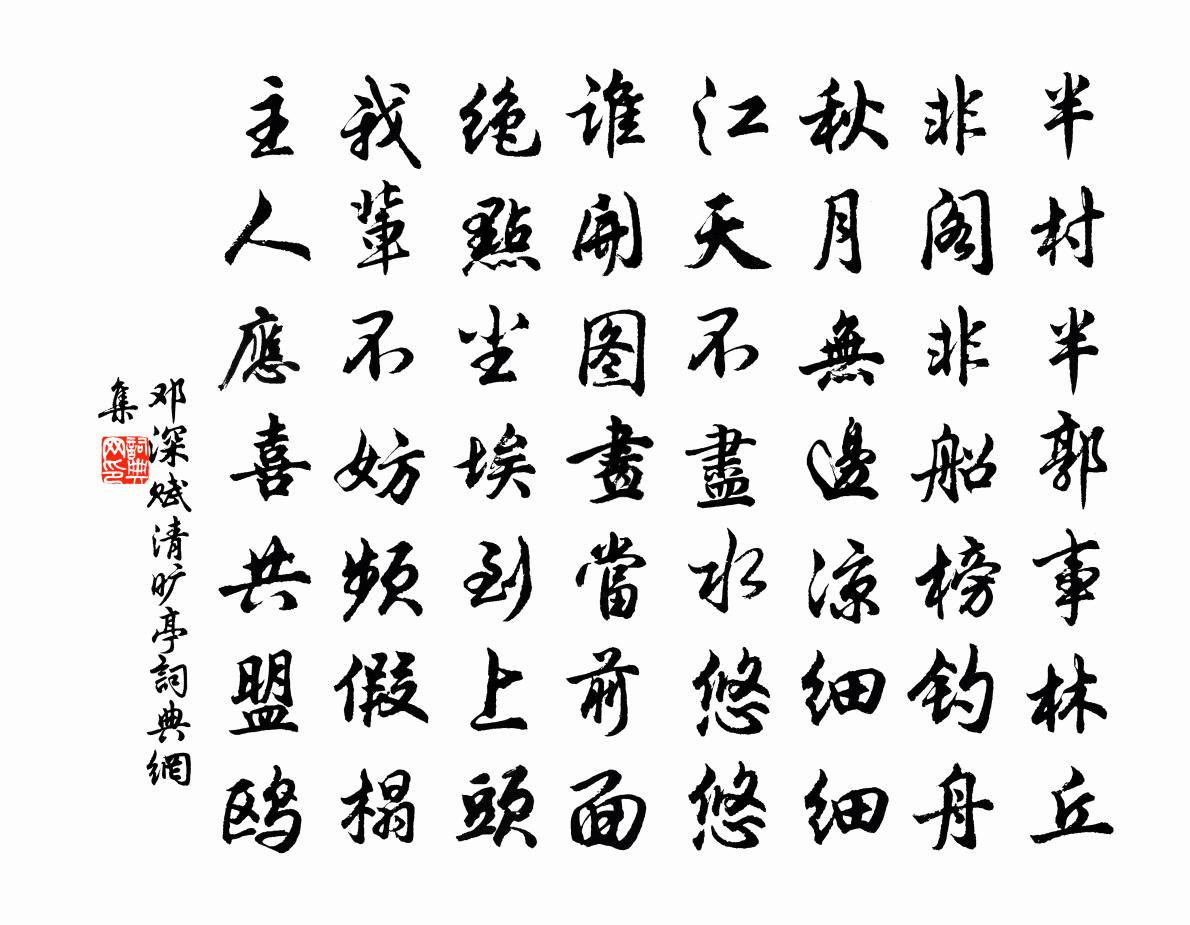 半村半郭事林丘
非阁非船榜钓舟
秋月無邊凉细细
江天不盡水悠悠
谁開图畫當前面
绝點尘埃到上頭
我輩不妨频假榻
主人應喜共盟鸥
邓深赋清旷亭詞典網
集
詞典网印